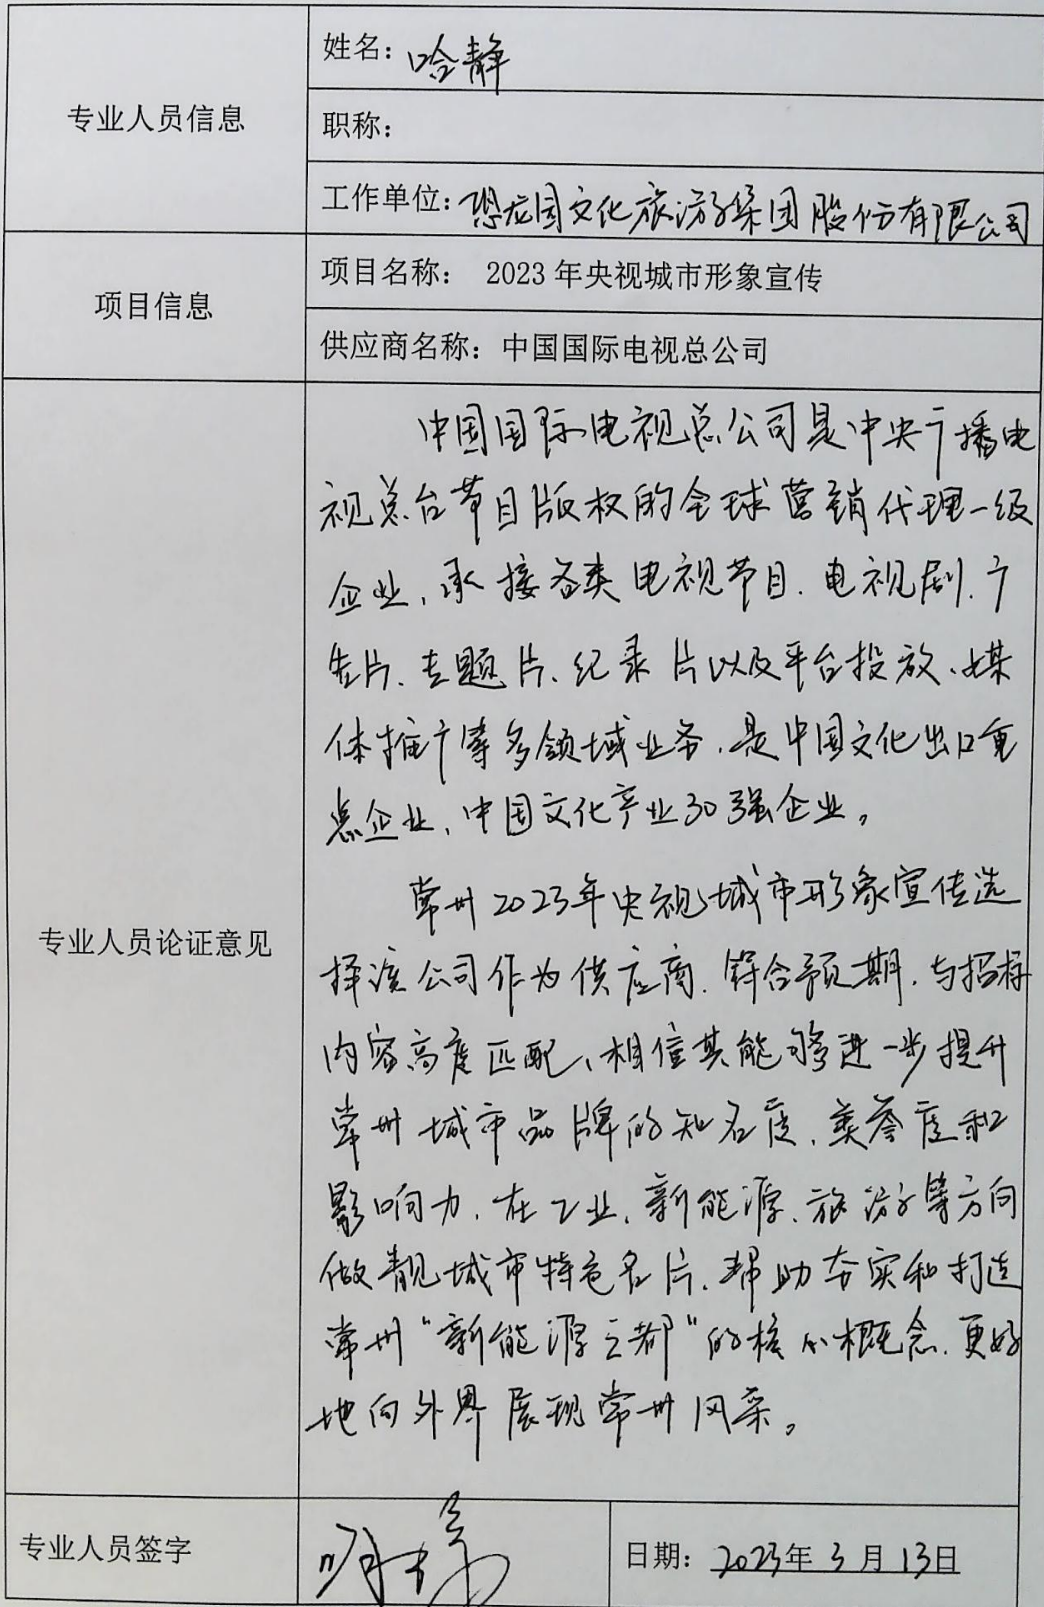 专业人员信息
姓名：哈静
职称：
工作单位：恐龙园文化旅游集团股份有限公司
项目信息
项目名称： 2023 年央视城市形象宣传
供应商名称：中国国际电视总公司
专业人员论证意见
中国国际电视总公司是中央广播电
视总台节目版权的全球营销代理一级
企业，承接各类电视节目、电视剧、广
告片、专题片、纪录片以及平台投放、媒
体推广等多领域业务，是中国文化出口重
点企业、中国文化产业30强企业。
常州2023年央视城市形象宣传选
择该公司作为供应商，符合预期，与招标
内容高度匹配，相信其能够进一步提升
常州城市品牌的知名度、美誉度和
影响力，在工业、新能源、旅游等方向
做靓城市特色名片，帮助夯实和打造
常州“新能源之都”的核心概念，更好
地向外界展现常州风采。
专业人员签字
日期：2023年 3 月 13日